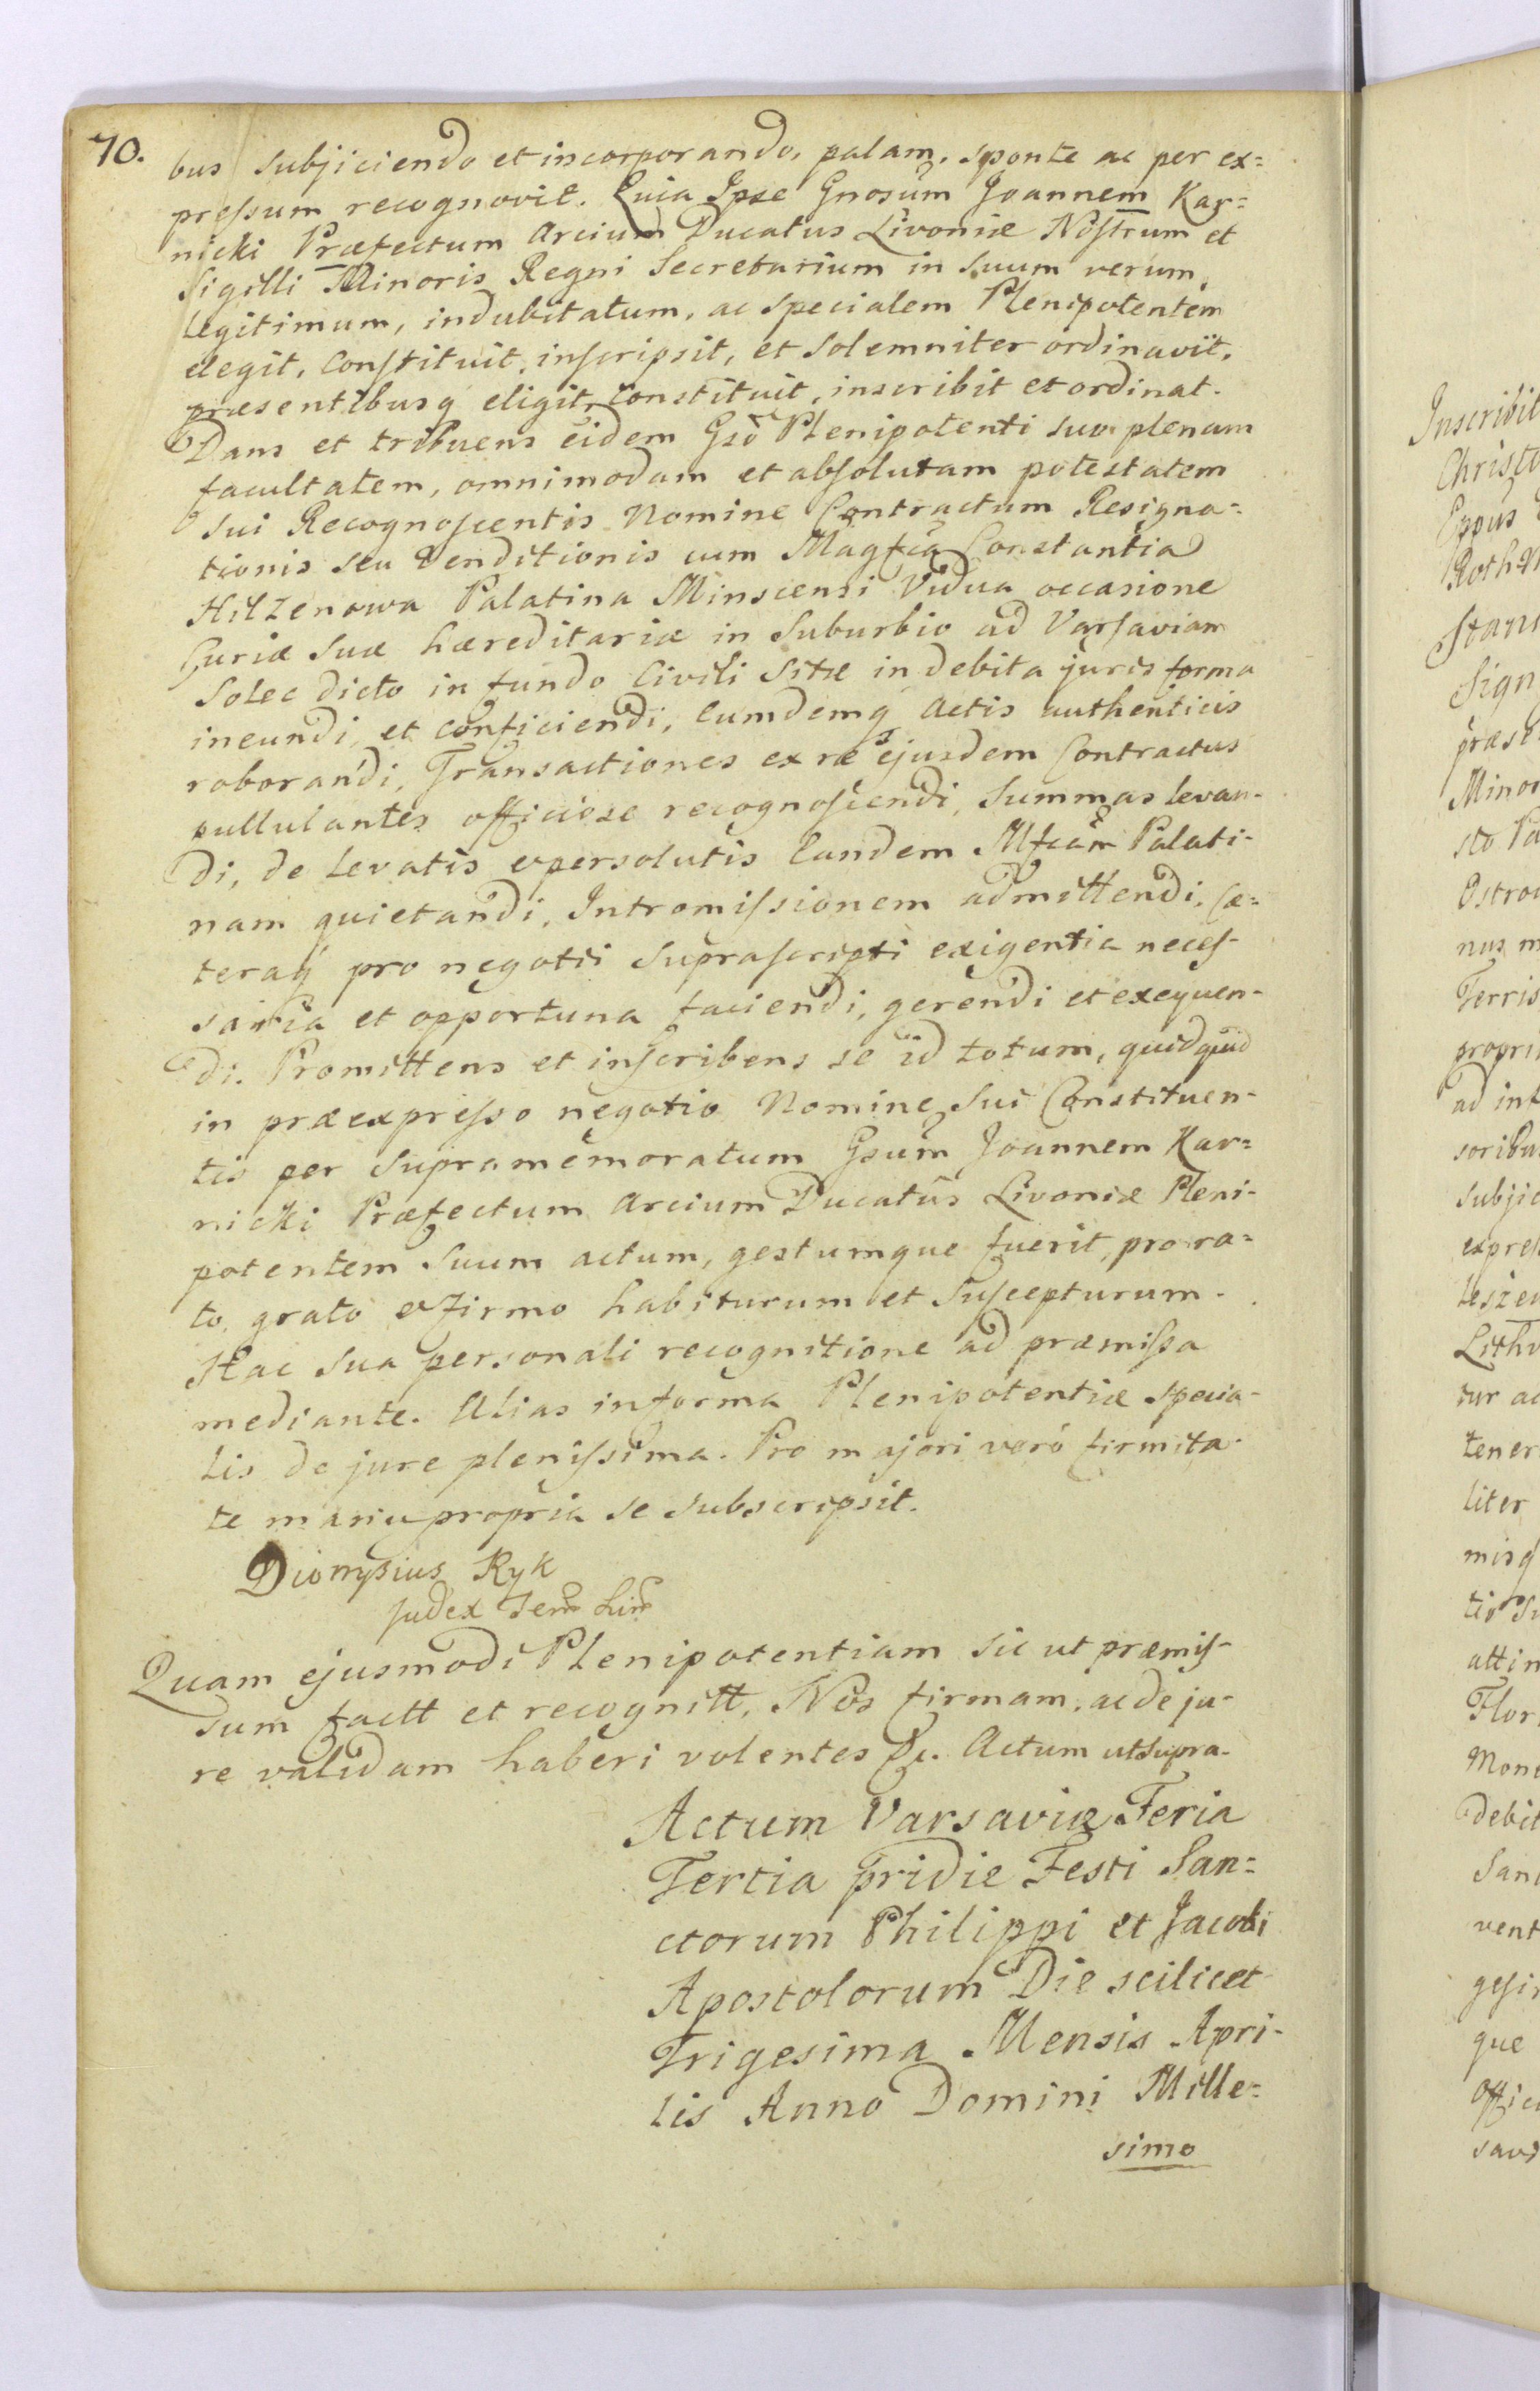 70.
bus subjiciendo et incorporando, palam, sponte ac per ex=
pressum recognovit. Quia Ipse Gnosum Joannem Kar=
nicki Præfectum Arcium Ducatus Livoniæ Nostrum et
Sigilli Minoris Regni Secretarium in suum verum,
legitimum, indubitatum, ac specialem Plenipotentem
elegit, constituit, inscripsit, et solemniter ordinavit,
præsentibusq eligit, constituit, inscribit et ordinat.
Dans et tribuens eidem Gso Plenipotenti suo plenam
facultatem, omnimodam et absolutam potestatem
sui Recognoscentis Nomine Contractum Resigna=
tionis seu Venditionis cum Magfca Constantia
Hilzenowa Palatina Minscensi Vidua occasione
Curiæ suæ hæreditariæ in Suburbio ad Varsaviam
Solec dicto in fundo Civili sitæ in debita juris forma
ineundi, et conficiendi, eumdemq Actis authenticis
roborandi, Transactiones ex re ejusdem Contractus
pullulantes officiose recognoscendi, Summas levan-
di, de levatis et persolutis Eandem Mfcam Palati-
nam quietandi, Intromissionem admittendi, Cæ=
teraq pro negotii suprascripti exigentia neces-
saria et opportuna faciendi, gerendi et exequen-
di. Promittens et inscribens se id totum, quidquid
in præexpresso negotio Nomine sui Constituen-
tis per supramemoratum Gsum Joannem Kar=
nicki Præfectum Arcium Ducatus Livoniæ Pleni-
potentem suum actum, gestumque fuerit, pro ra=
to, grato et firmo habiturum et suscepturum.
Hac sua personali recognitione ad præmissa
mediante. Alias in forma Plenipotentiæ specia-
lis de jure plenissima. Pro majori veró firmita-
te manu propria se subscripsit.
Dionysius Ryk
Judex
Quam ejusmodi Plenipotentiam sic ut præmis-
sum factt et recognitt, Nos firmam, ac de ju-
re validam haberi volentes &c. Actum ut supra.
Actum Varsaviæ Feria
Tertia pridie Festi San=
ctorum Philippi et Jacobi
Apostolorum Die scilicet
Trigesima Mensis Apri-
lis Anno Domini Mille=
simo
Inscribit
Christo
Eppus
Roth
Stani
Sign
præst
Minor
sto Pa
Ostrow
nus m
Terris
propri
ad int
soribu
subjic
expres
Leszen
Lithv
tur ac
tener
liter
misq
tis Su
attin
Flor
Mone
debit
Sanc
vent
gesi
que
offici